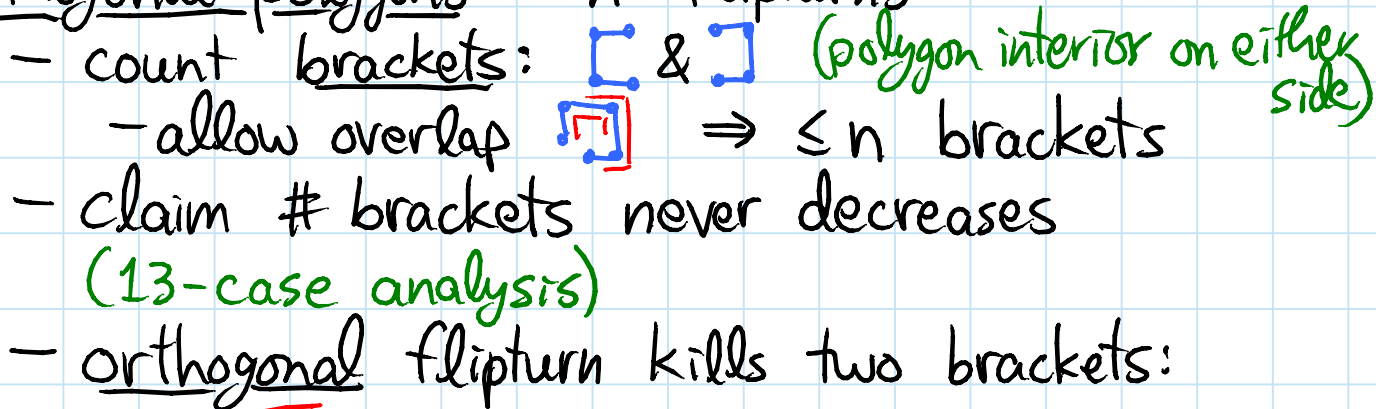 - count brackets: [ & ] (polygon interior on either side)
- allow overlap ⇒ ≤ n brackets
- claim # brackets never decreases
(13-case analysis)
- orthogonal flipturn kills two brackets: